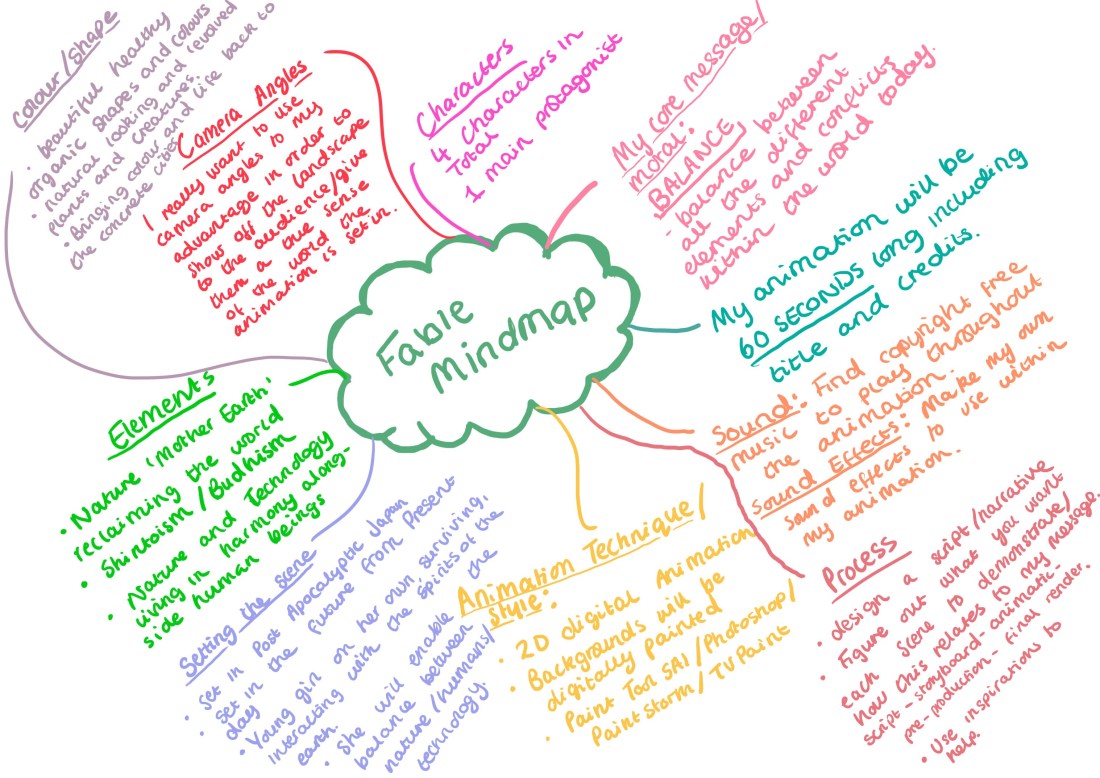 Fable
Mindmap
Colour/Shape
• beautiful healthy
organic shapes and colours
• natural looking and 'evolved'
plants and creatures.
• Bringing colour and life back to
the concrete cities
Camera Angles
I really want to use
camera angles to my
advantage in order to
show off the landscape
to the audience/give
them a true sense
of the world the
animation is set in.
Characters
4 Characters in
Total
1 main protagonist
My core message/
moral:
BALANCE
- balance between
all the different
elements and conflicts
within the world today.
My animation will be
60 SECONDS long including
title and credits.
Sound: Find copyright free
music to play throughout
the animation.
Sound Effects: Make my own
sound effects to use within
my animation.
Process
• design a script/narrative
• Figure out what you want
each scene to demonstrate/
how this relates to my message.
script - storyboard - animatic -
pre-production - final render.
• Use inspirations to
help.
Animation Technique/
style:
• 2D digital Animation
• Backgrounds will be
digitally painted
• Paint Tool SAI/Photoshop/
Paint Storm/TV Paint
Setting the scene
• Set in Post Apocalyptic Japan
set in the future from Present
day
• Young girl on her own surviving,
interacting with the spirits of the
earth.
• She will enable the
balance between
nature/humans/
technology.
Elements
• Nature 'Mother Earth'
reclaiming the world
• Shintoism/Budhism
• Nature and Technology
living in harmony along-
side human beings